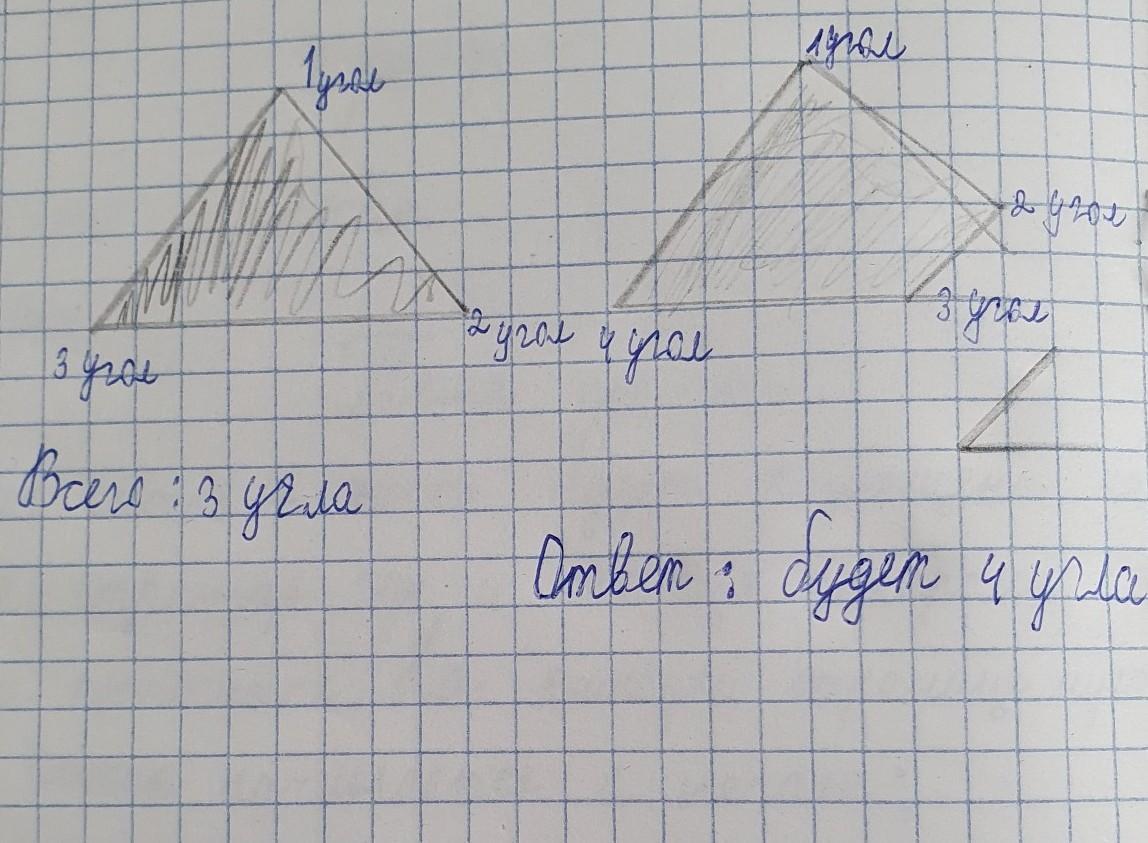 1 угол
1 угол
2 угол
3 угол
2 угол
4 угол
3 угол
Всего : 3 угла
Ответ : будет 4 угла